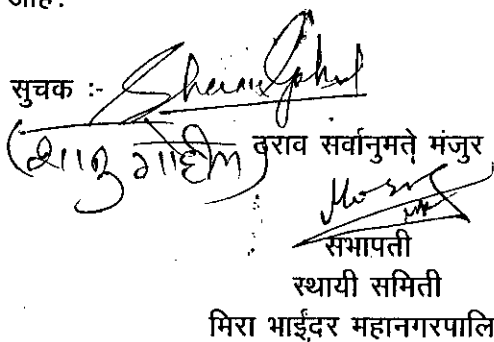 आहे.
सुचक :-
(शानु गोहील) ठराव सर्वानुमते मंजुर
सभापती
स्थायी समिती
मिरा भाईंदर महानगरपालि